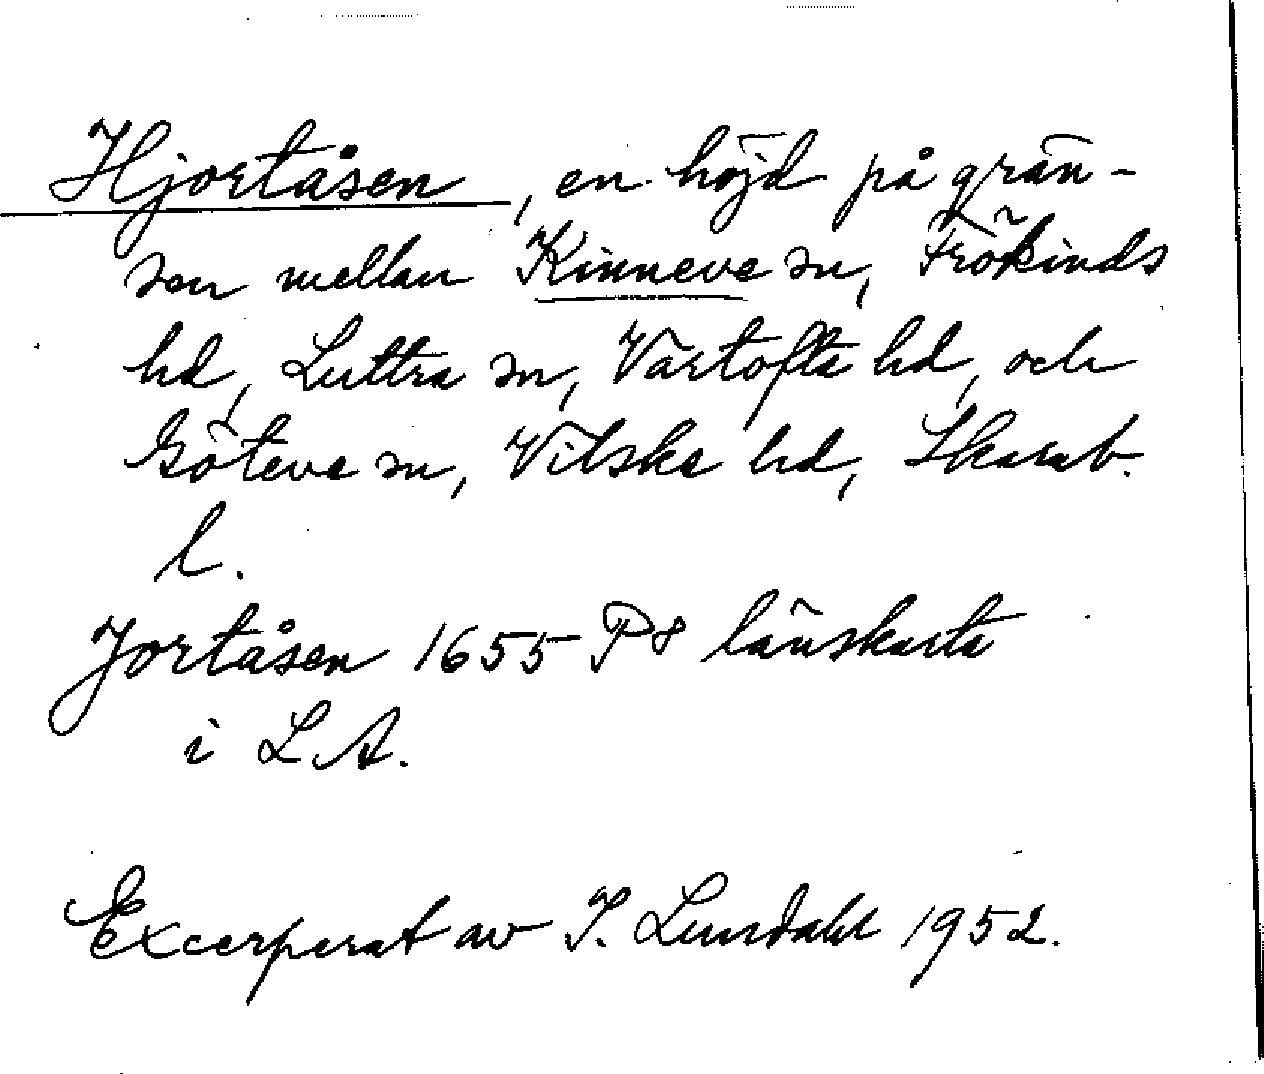 Hjortåsen, en höjd på grän-
sen mellan Kinneve sn, Frökinds
hd, Luttra sn, Vartofta hd, och
Göteve sn, Vilske hd, Skarab.
l.
Jortåsen 1655 P8 länskarta
i L.A.
Excerperat av I. Lundahl 1952.